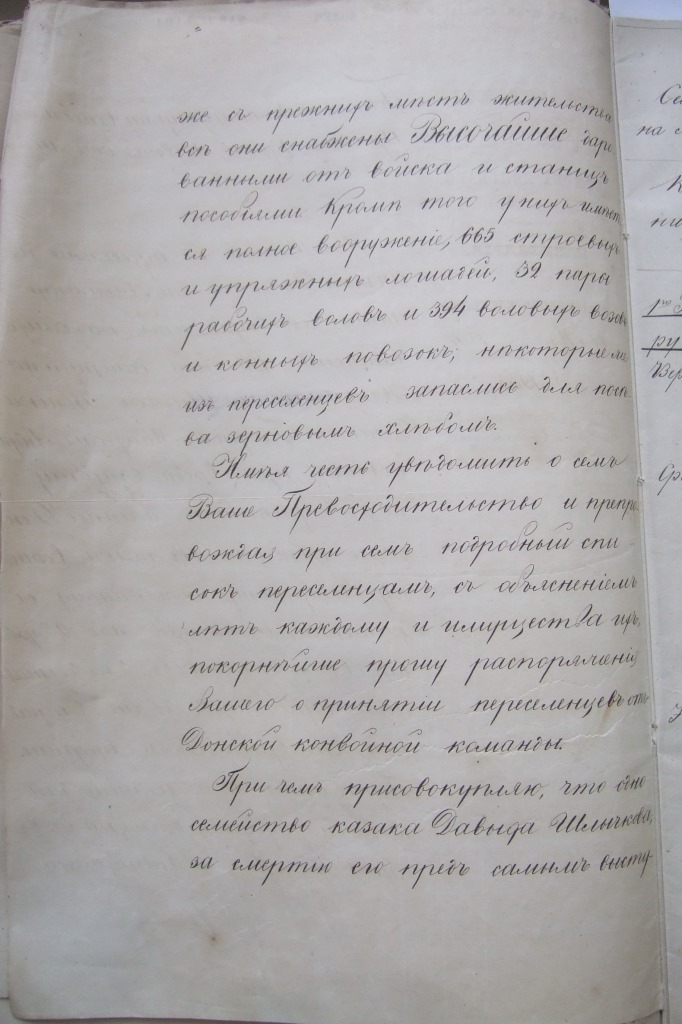 же съ прежнихъ мѣстъ жительства
всѣ они снабжены Высочайше даро
ванными отъ войска и станицъ
пособіями Кромѣ того у нихъ имѣет
ся полное вооруженіе, 665 строевыхъ
и упряжныхъ лошадей, 52 пары
рабочихъ воловъ и 394 воловыхъ возов
и конныхъ повозокъ; нѣкоторые же
изъ переселенцевъ запаслись для посѣ
ва зерновымъ хлѣбомъ.
Имѣя честь увѣдомить о семъ
Ваше Превосходительство и препро
вождая при семъ подробный спи-
сокъ переселенцамъ, съ объясненіемъ
лѣтъ каждому и имущества ихъ,
покорнѣйше прошу распоряженія
Вашего о принятіи переселенцевъ отъ
Донской конвойной команды.
При чемъ присовокупляю, что одно
семейство казака Давыда Шлычкова,
за смертію его предъ самымъ высту-
Се
на с
К
ни
ру
Вер